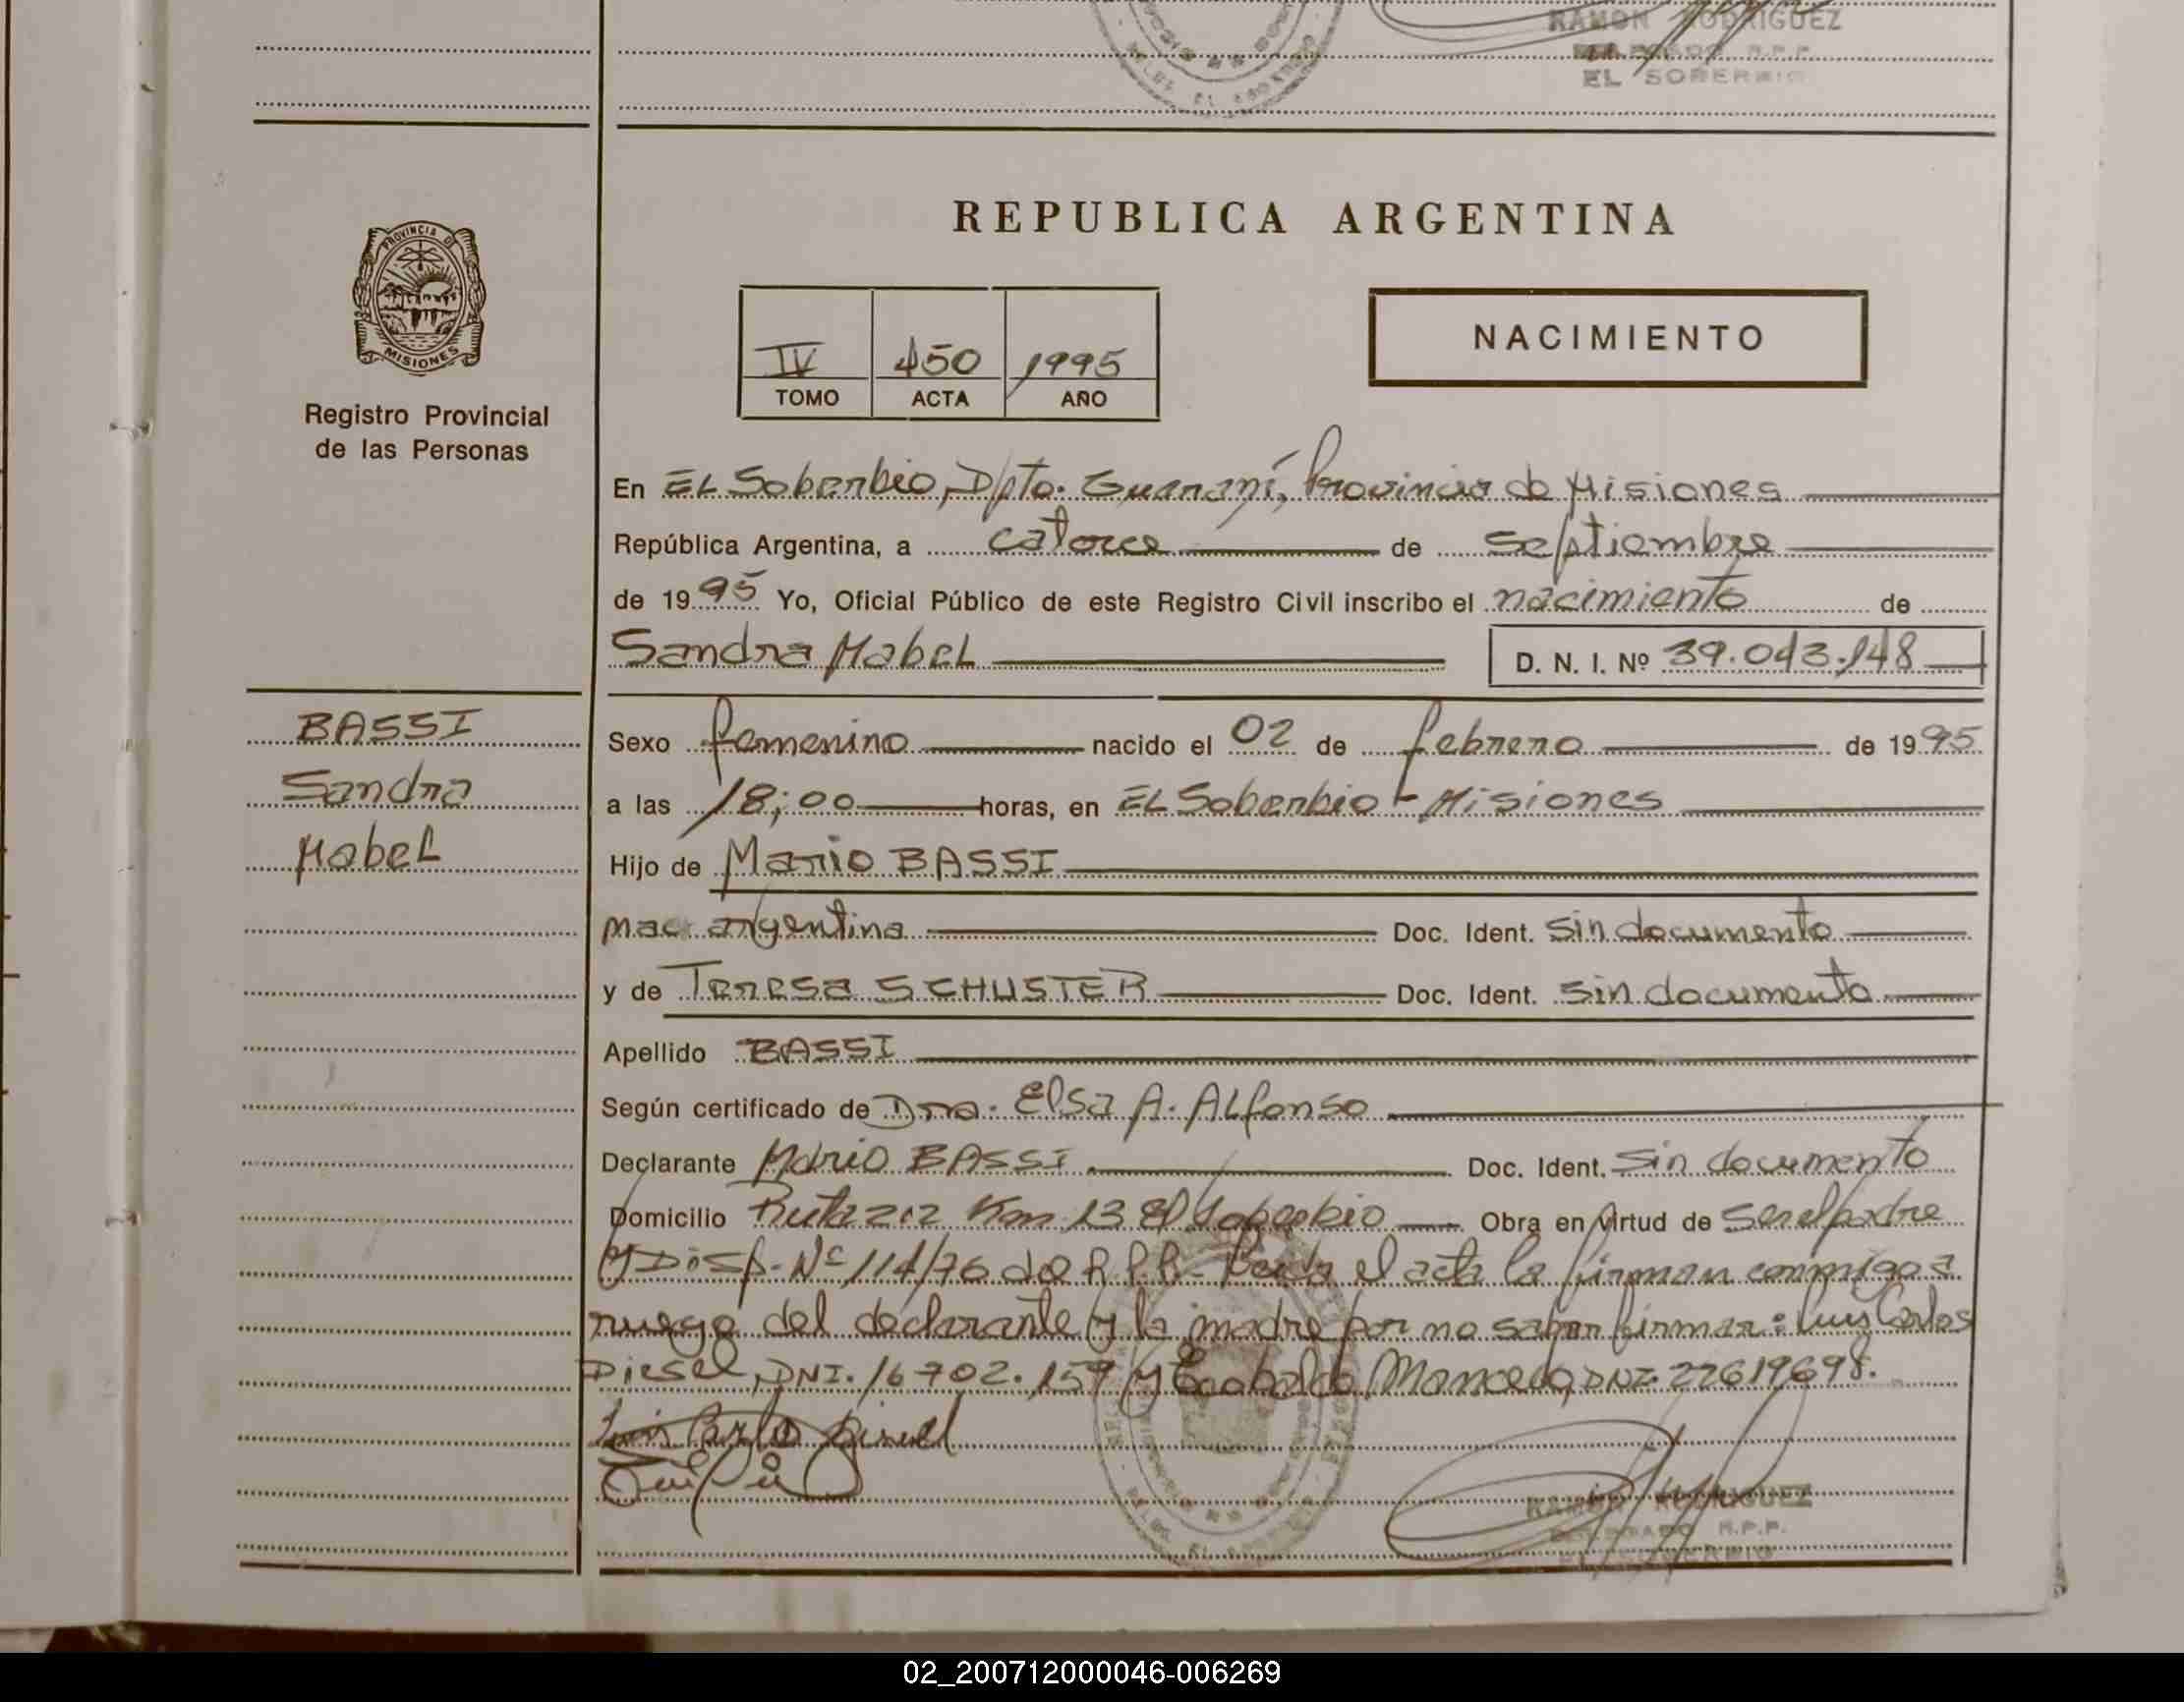 RAMON RODRIGUEZ
DELEGADO R.P.P.
EL SOBERBIO
PROVINCIA DE
MISIONES
Registro Provincial
de las Personas
REPUBLICA ARGENTINA
IV 450 1995
TOMO ACTA AÑO
NACIMIENTO
En EL Soberbio, Dpto. Guaraní, Provincia de Misiones
República Argentina, a catorce de septiembre
de 1995 Yo, Oficial Público de este Registro Civil inscribo el nacimiento de
Sandra Mabel D. N. I. Nº 39.043.148
BASSI
Sandra
Mabel
Sexo femenino nacido el 02 de febrero de 1995
a las 18;00 horas, en EL Soberbio - Misiones
Hijo de Mario BASSI
nac. argentina Doc. Ident. sin documento
y de Teresa SCHUSTER Doc. Ident. sin documento
Apellido BASSI
Según certificado de Dra. Elsa A. Alfonso
Declarante Mario BASSI Doc. Ident. sin documento
Domicilio Ruta 212 Km 13 El Soberbio Obra en virtud de ser el padre
y Disp. Nº 114/76 de R.P.P. Leida el acta la firman conmigo a
ruego del declarante y la madre por no saber firmar: Luis Carlos
Diesel, DNI. 16702.159 y DNI. 22619698.
RAMON RODRIGUEZ
DELEGADO R.P.P.
EL SOBERBIO
02_200712000046-006269